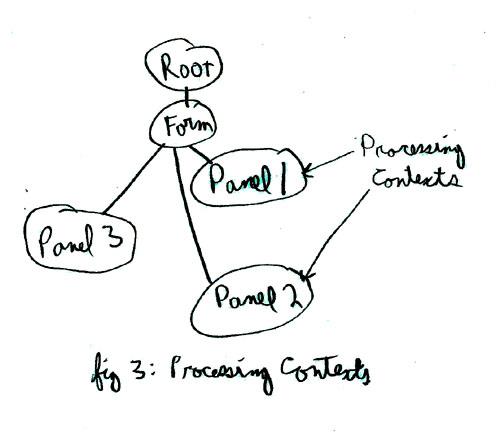 Root
Form
Panel 1
Processing
Contexts
Panel 3
Panel 2
fig 3: Processing Contexts